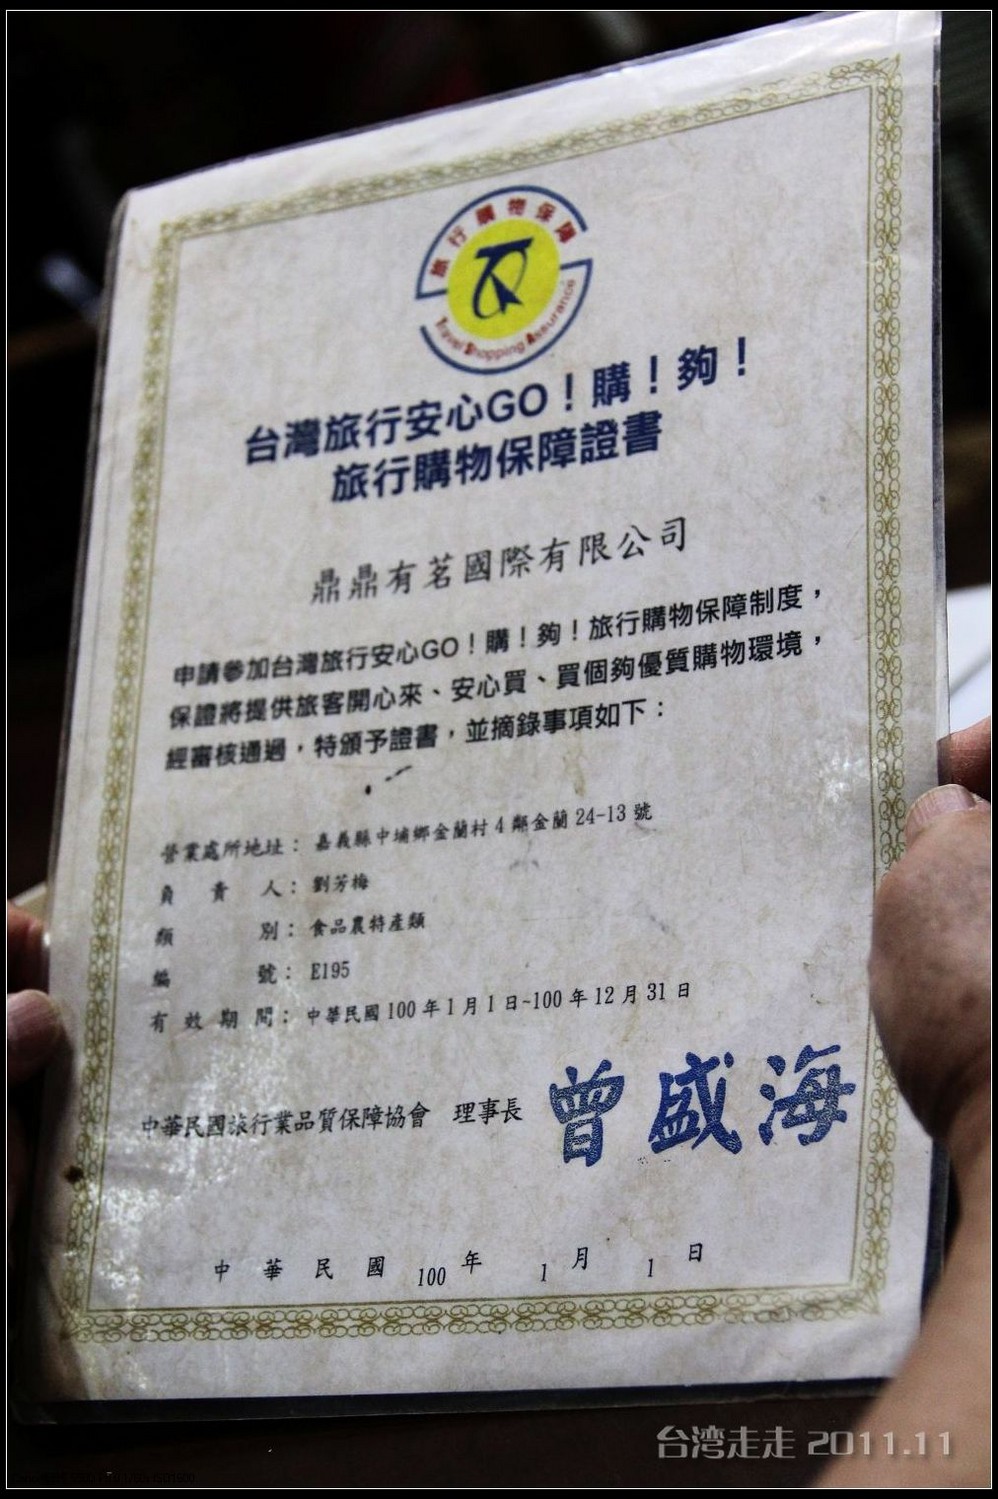 旅行購物保障
Travel Shopping Assurance
台灣旅行安心GO！購！夠！
旅行購物保障證書
鼎鼎有茗國際有限公司
申請參加台灣旅行安心GO！購！夠！旅行購物保障制度，
保證將提供旅客開心來、安心買、買個夠優質購物環境，
經審核通過，特頒予證書，並摘錄事項如下：
營業處所地址：嘉義縣中埔鄉金蘭村4鄰金蘭24-13號
負責人：劉芳梅
類別：食品農特產類
編號：E195
有效期間：中華民國100年1月1日~100年12月31日
中華民國旅行業品質保障協會 理事長 曾盛海
中華民國100年1月1日
台湾走走 2011.11